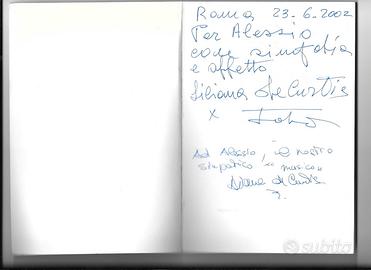 Roma 23-6-2002
Per Alessio
con simpatia
e affetto
Liliana De Curtis
x Totò
Ad Alessio, il nostro
simpatico
Diana de Curtis
subito